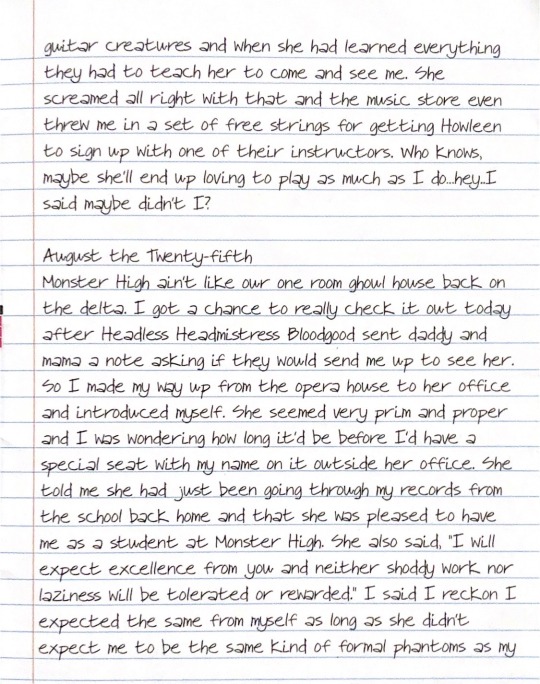 guitar creatures and when she had learned everything
they had to teach her to come and see me. She
screamed all right with that and the music store even
threw me in a set of free strings for getting Howleen
to sign up with one of their instructors. Who knows,
maybe she'll end up loving to play as much as I do...hey..I
said maybe didn't I?

August the Twenty-fifth
Monster High ain't like our one room ghoul house back on
the delta. I got a chance to really check it out today
after Headless Headmistress Bloodgood sent daddy and
mama a note asking if they would send me up to see her.
So I made my way up from the opera house to her office
and introduced myself. She seemed very prim and proper
and I was wondering how long it'd be before I'd have a
special seat with my name on it outside her office. She
told me she had just been going through my records from
the school back home and that she was pleased to have
me as a student at Monster High. She also said, "I will
expect excellence from you and neither shoddy work nor
laziness will be tolerated or rewarded." I said I reckon I
expected the same from myself as long as she didn't
expect me to be the same kind of formal phantoms as my